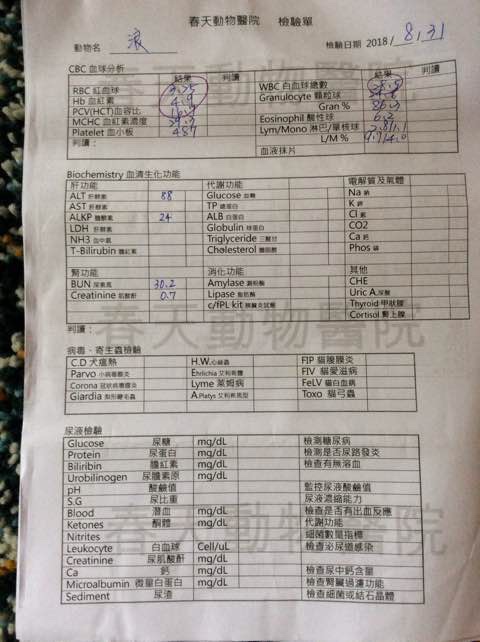 春天動物醫院 檢驗單
動物名 浪 檢驗日期 2018/8,31
CBC 血球分析
結果 判讀 結果 判讀
RBC 紅血球 3.75 WBC 白血球總數
Hb 血紅素 4.9 Granulocyte 顆粒球
PCV(HCT)血容比 Gran % 86.3
MCHC 血紅素濃度 Eosinophil 酸性球 6.2
Platelet 血小板 487 Lym/Mono 淋巴/單核球
判讀： L/M %
血液抹片
Biochemistry 血清生化功能
肝功能 代謝功能 電解質及氣體
ALT 肝酵素 88 Glucose 血糖 Na 鈉
AST 肝酵素 TP 總蛋白 K 鉀
ALKP 膽酵素 24 ALB 白蛋白 Cl 氯
LDH 肝酵素 Globulin 球蛋白 CO2
NH3 血中氨 Triglyceride 三酸甘 Ca 鈣
T-Bilirubin 膽紅素 Cholesterol 膽固醇 Phos 磷
腎功能 消化功能 其他
BUN 尿素氮 30.2 Amylase 澱粉酶 CHE
Creatinine 肌酸酐 0.7 Lipase 脂肪酶 Uric A.尿酸
c/fPL kit 胰臟炎試劑 Thyroid 甲狀腺
Cortisol 腎上腺
判讀：
病毒、寄生蟲檢驗
C.D 犬瘟熱 H.W.心絲蟲 FIP 貓腹膜炎
Parvo 小病毒腸炎 Ehrlichia 艾利希體 FIV 貓愛滋病
Corona 冠狀病毒腸炎 Lyme 萊姆病 FeLV 貓白血病
Giardia 梨形鞭毛蟲 A.Platys 艾利希馬型 Toxo 貓弓蟲
尿液檢驗
Glucose 尿糖 mg/dL 檢測糖尿病
Protein 尿蛋白 mg/dL 檢測是否尿路發炎
Biliribin 膽紅素 mg/dL 檢查有無溶血
Urobilinogen 尿膽素原 mg/dL
pH 酸鹼值 監控尿液酸鹼值
S.G 尿比重 尿液濃縮能力
Blood 潛血 mg/dL 檢查是否有出血反應
Ketones 酮體 mg/dL 代謝功能
Nitrites 細菌數量指標
Leukocyte 白血球 Cell/uL 檢查泌尿道感染
Creatinine 尿肌酸酐 mg/dL
Ca 鈣 mg/dL 檢查尿中鈣含量
Microalbumin 微量白蛋白 mg/dL 檢查腎臟過濾功能
Sediment 尿渣 檢查細菌或結石晶體